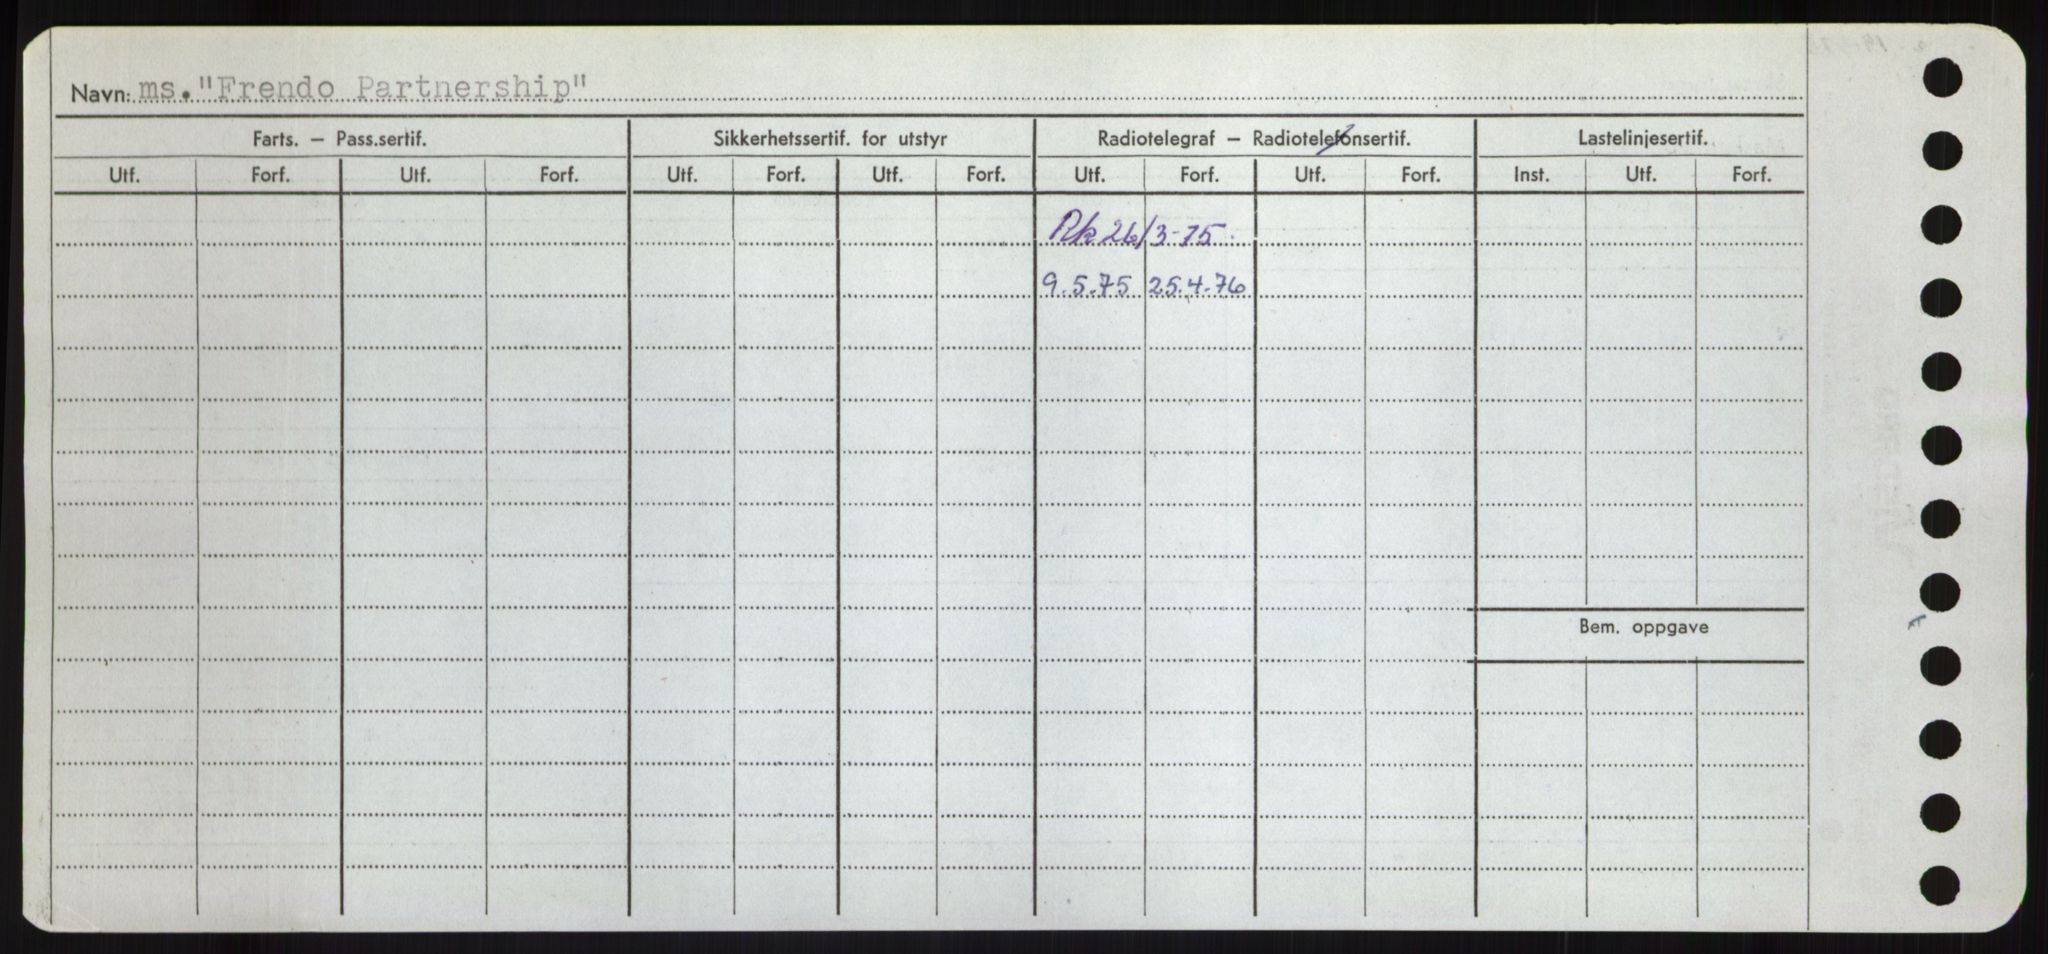 Navn: ms. "Frendo Partnership"
Farts. – Pass.sertif. Sikkerhetssertif. for utstyr Radiotelegraf – Radiotelefonsertif. Lastelinjesertif.
Utf. Forf. Utf. Forf. Utf. Forf. Utf. Forf. Utf. Forf. Utf. Forf. Inst. Utf. Forf.
Rk 26/3-75.
9.5.75 25.4.76
Bem. oppgave